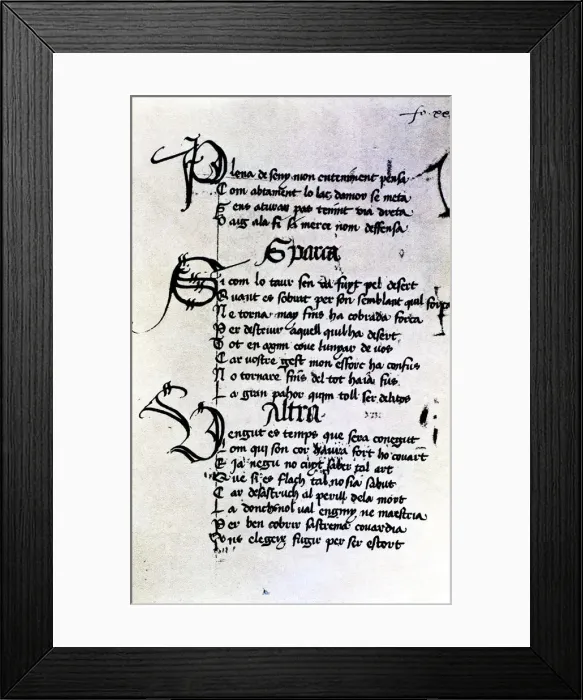 fo. xx
Plena de seny mon enteniment pensa
Com abtament lo laç damor se meta
Sens aturar pas tenint via dreta
Vaig a la fi si merce nom deffensa
Sparça
Si com lo taur sen va fuyt pel desert
Quant es sobrat per son semblant quil força
Ne torna may fins ha cobrada força
Per destruir aquell quil ha desert
Tot en axim cove lunyar de vos
Car vostre gest mon esforç ha confus
No tornare fins del tot haia fus
La gran pahor quim toll ser delitos
Altra
Vengut es temps que sera conegut
Lom qui son cor haura fort ho covart
E ja negu no cuyt saber tal art
Que si es flach tal no sia sabut
Car desastruch al perill dela mort
La donchs nol val enginy ne maestria
Per ben cobrir sa strema covardia
ons elegeix fugir per ser estort